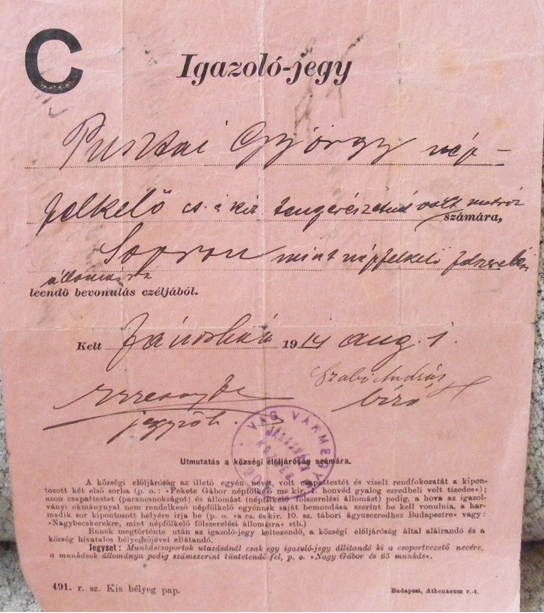 C
Igazoló-jegy
Pusztai György nép-
felkelő cs. é kir. tengerészetnél volt matróz
számára,
Sopron mint népfelkelő felszerelési
állomásra
leendő bevonulás czéljából.
Kelt Jánosháza 1914 aug. 1.
Szabó András
jegyző. biró
VAS VÁRME
Utmutatás a községi elöljáróság számára.
A községi elöljáróság az illető egyén nevét, volt csapattestét és viselt rendfokozatát a kipon-
tozott két első sorba (p. o.: »Fekete Gábor népfölkelő m. kir. honvéd gyalog ezredbeli volt tizedes«);
azon csapattestet (parancsnokságot) és állomást (népfölkelő fölszerelési állomást) pedig, a hova az igazol-
ványi okmánynyal nem rendelkező népfölkelő egyénnek saját bemondása szerint be kell vonulnia, a har-
madik sor kipontozott helyére írja be (p. o. »a cs. és kir. 10. sz. tábori ágyusezredhez Budapestre« vagy:
»Nagybecskerekre, mint népfölkelő fölszerelési állomásra« stb.)
Ennek megtörténte után az igazoló-jegy keltezendő, a községi elöljáróság által aláirandó és a
község hivatalos bélyegzőjével ellátandó.
Jegyzet: Munkáscsoportok utazásánál csak egy igazoló-jegy állitandó ki a csoportvezető nevére,
a munkások állománya pedig számszerint tüntetendő fel, p. o. »Nagy Gábor és 65 munkás«.
491. r. sz. Kis bélyeg pap.
Budapest, Athenaeum r.-t.